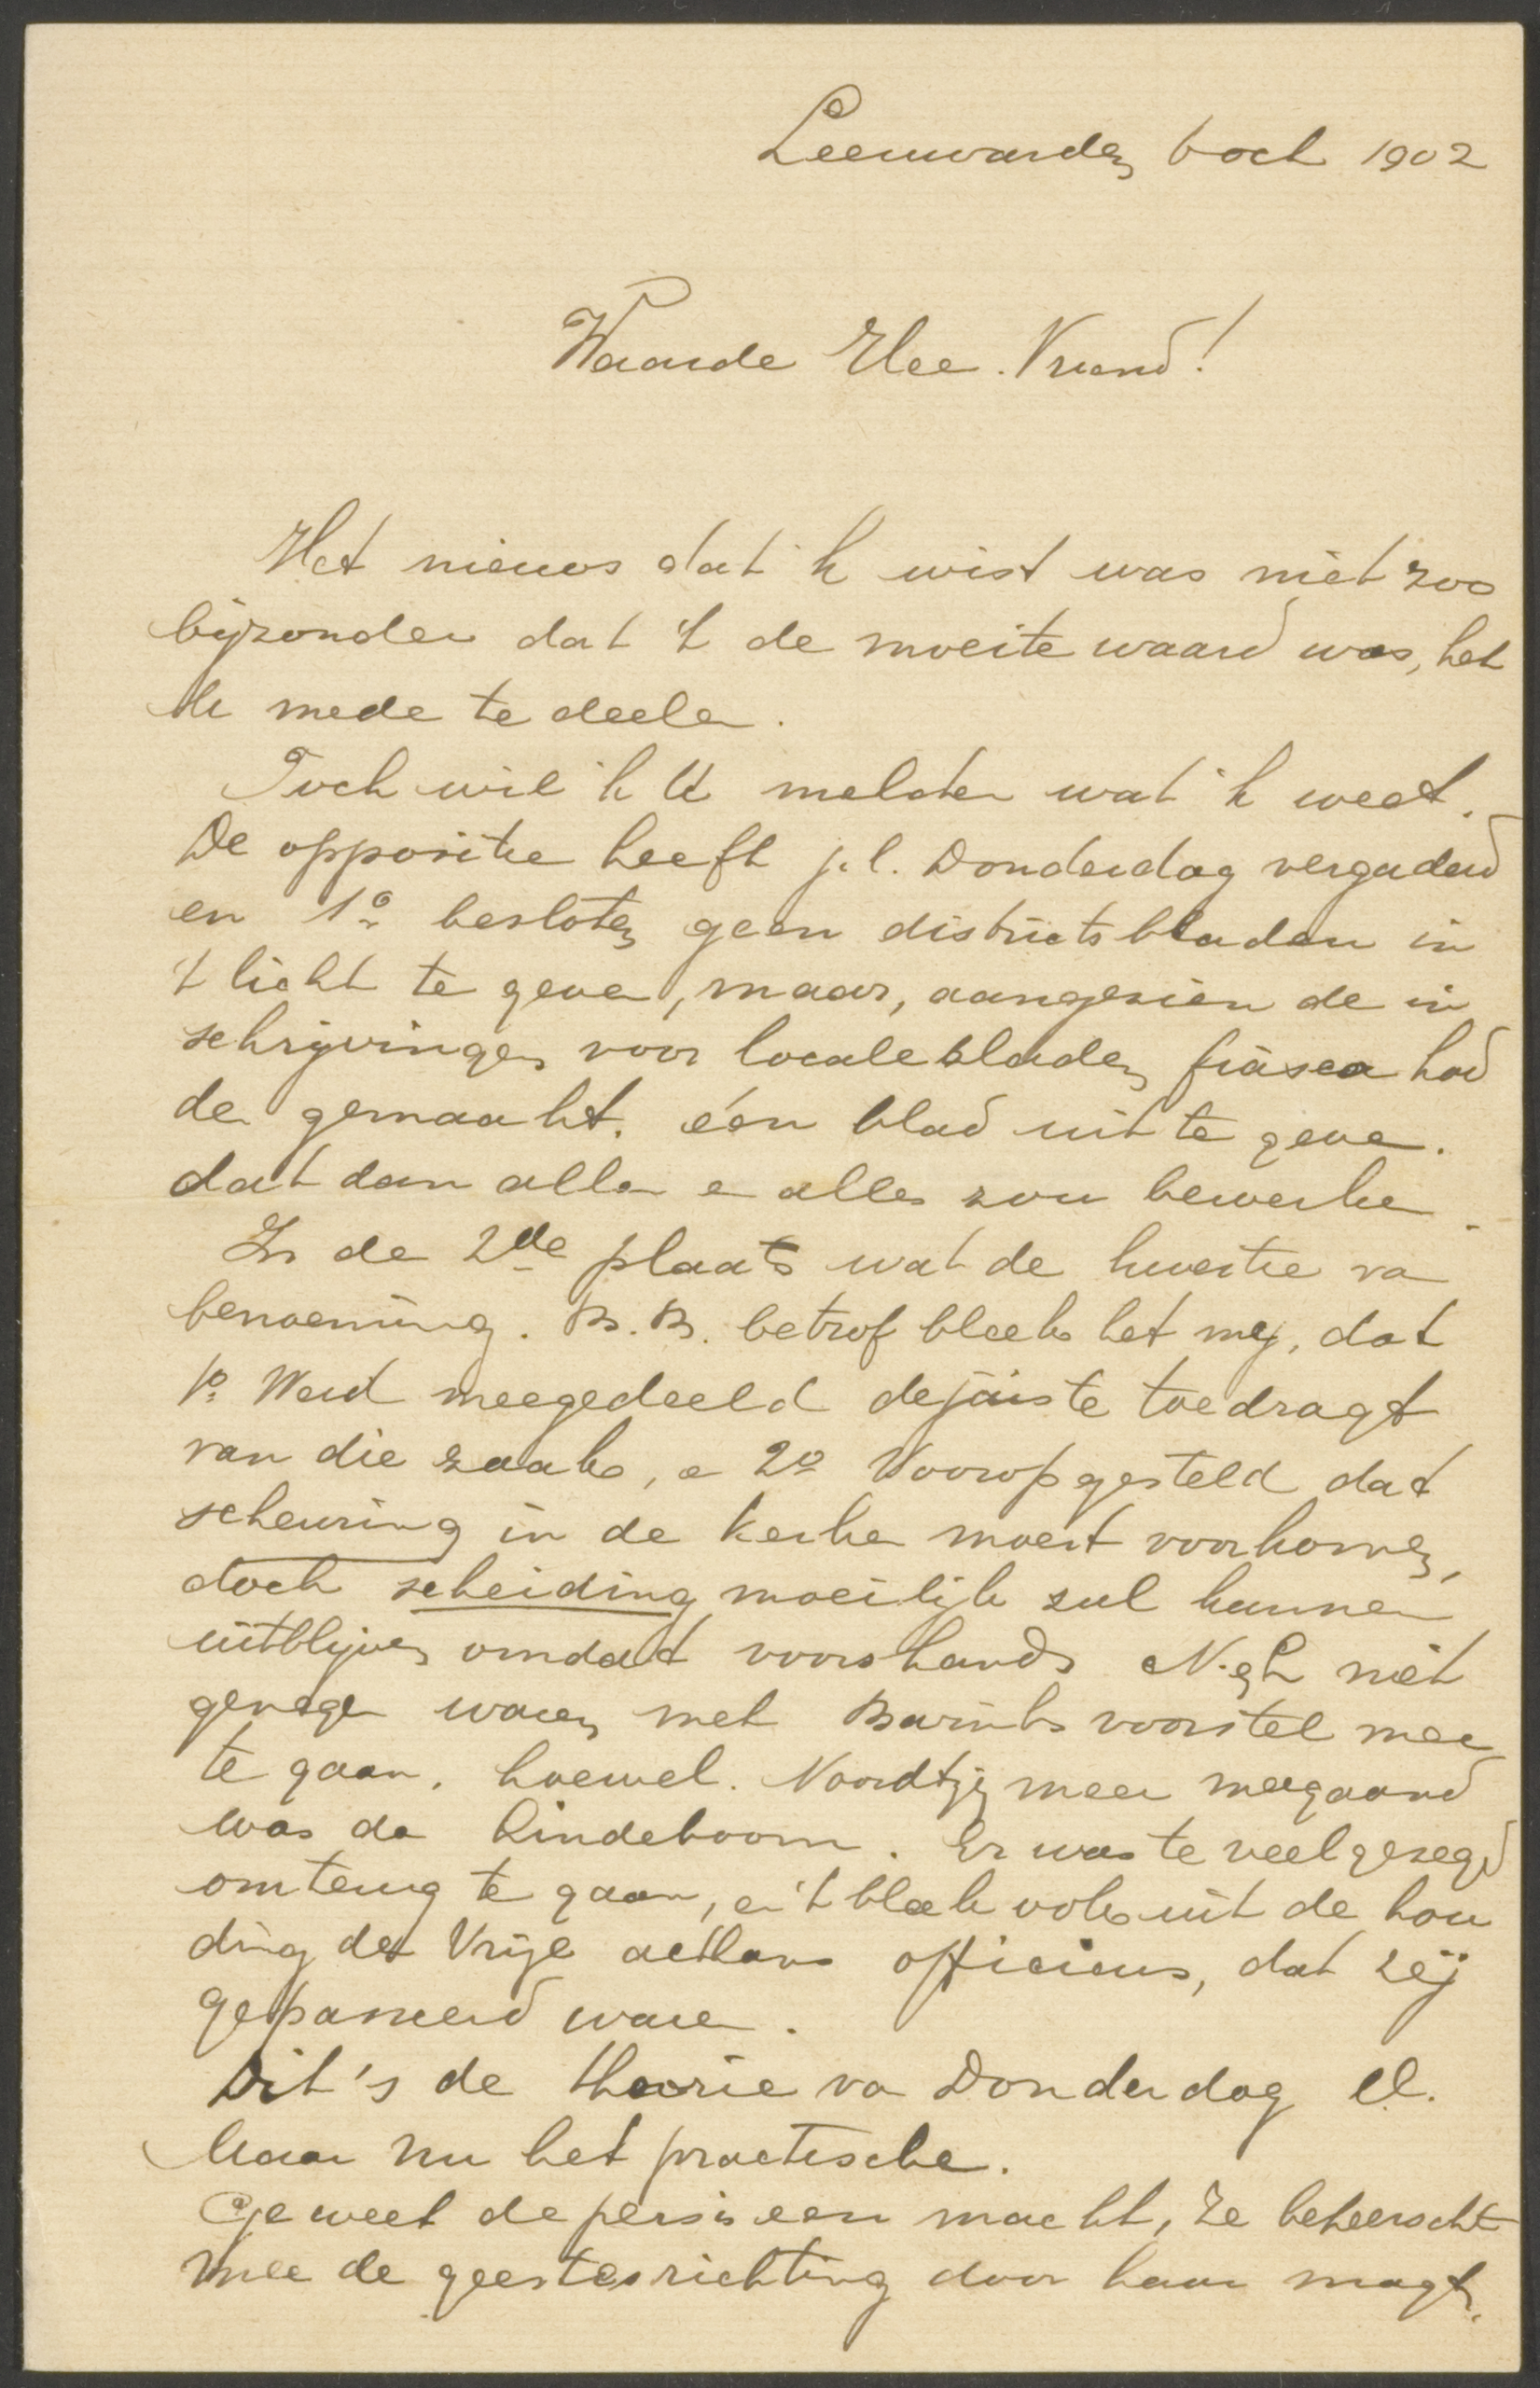 Leeuwarden 6 oct 1902
Waarde Elee. Vriend!
Het nieuws dat ik wist was niet zoo
bijzonder dat 't de moeite waard was, het
U mede te deelen.
Toch wil ik U melden wat ik weet.
De oppositie heeft j.l. Donderdag vergaderd
en 1o besloten geen districtsbladen in
't licht te geven, maar, aangezien de in
schrijvingen voor locale bladen fiasco had
den gemaakt, één blad uit te geven.
dat dan allen en alles zou bewerken.
In de 2de plaats wat de kwestie van
benoeming. B.B. betrof bleek het mij, dat
1o Werd meegedeeld de juiste toedragt
van die zaak, en 2o Voorop gesteld dat
scheuring in de kerken moest voorkomen,
doch scheiding moeilijk zal kunnen
uitblijven omdat voorshands N. en L niet
genegen waren met Bavinks voorstel mee
te gaan, hoewel. Noordtzij meer meegaand
was dan Lindeboom. Er was te veel gezegd
om terug te gaan, en 't bleek ook uit de hou
ding der Vrije althans officieus, dat zij
gepasseerd waren.
Dit 's de theorie van Donderdag ll.
Maar nu het practische.
Ge weet de pers is een macht, ze beheerscht
mee de geestesrichting door haar magt.